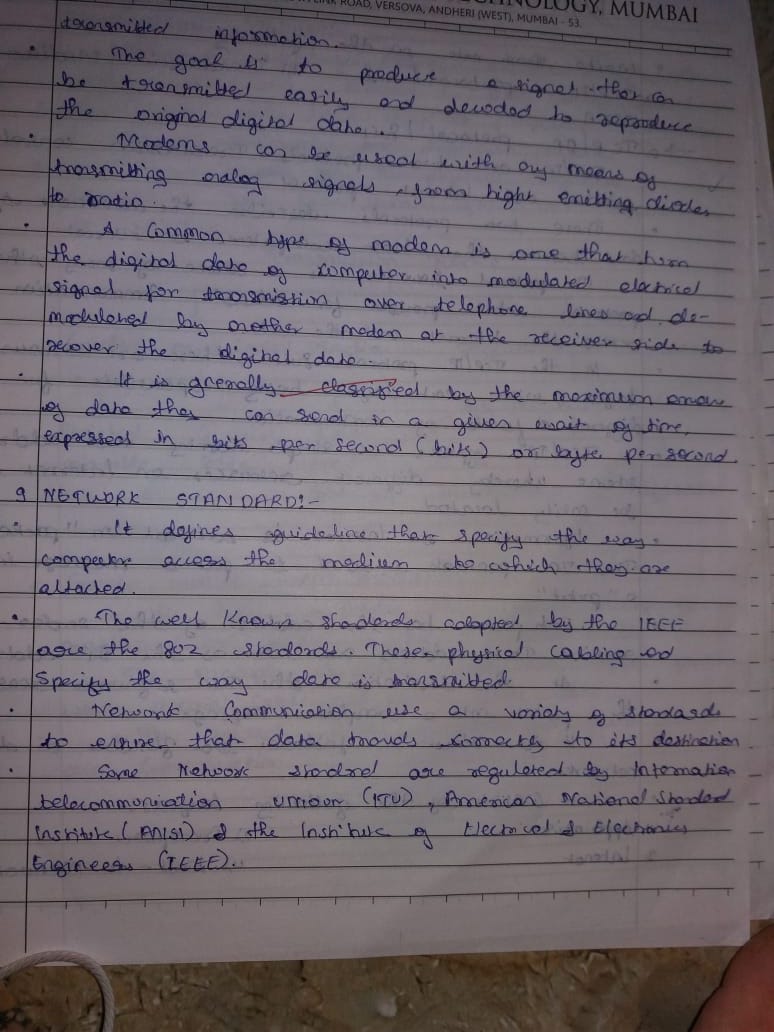 TECHNOLOGY, MUMBAI
LINK ROAD, VERSOVA, ANDHERI (WEST), MUMBAI - 53.
transmitted information.
• The goal is to produce a signal that can
be transmitted easily and decoded to reproduce
the original digital data.
• Modems can be used with any means of
transmitting analog signals, from light emitting diodes
to radio.
• A common type of modem is one that turn
the digital data of computer into modulated electrical
signal for transmission over telephone lines ad. de-
modulated by another modem at the receiver side to
recover the digital data.
• It is grenally classified by the maximum amou
of data they can send in a given unit of time,
expressed in bits per second (bits) or byte per second.
9 NETWORK STANDARD:-
• It defines guideline that specify the way
computer access the medium to which they are
attached.
• The well known standards adopted by the IEEE
are the 802 standards. These physical cabling ad
specify the way data is transmitted.
• Network Communication use a variety of standards
to ensure that data travels correctly to its destination
• Some Network standard are regulated by Internation
telecommunication union (ITU), American National Standard
Institute (ANSI) & the Institute of Electrical & Electronics
Engineers (IEEE).